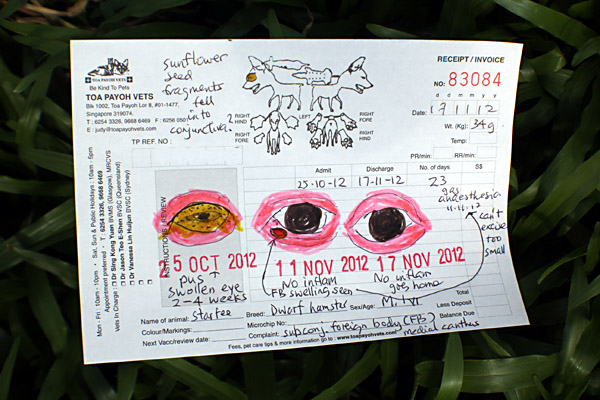 sunflower
seed
fragments
fell
into
conjunctiva.
TOA PAYOH VETS
Be Kind To Pets
TOA PAYOH VETS
Blk 1002, Toa Payoh Lor 8, #01-1477,
Singapore 319074.
T: 6254 3326, 9668 6469 F: 6256 050
E: judy@toapayohvets.com
TP REF. NO:
RIGHT HIND
LEFT
RIGHT FORE
RIGHT HIND
RECEIPT / INVOICE
NO: 83084
d d m m y y
Date: 17 11 12
Wt. (Kg): 34g
PR/min:
RR/min:
Admit
Discharge
No. of days
S$
25-10-12
17-11-12
23
gas
anaesthesia
11-11-12
can't
excise
too
small
INSTRUCTIONS / REVIEW
5 OCT 2012
11 NOV 2012
17 NOV 2012
pus
swollen eye
2-4 weeks
No inflam
FB swelling seen
No inflam
goes home
Mon - Fri: 10am - 10pm • Sat, Sun & Public Holidays: 10am - 5pm
Appointment preferred - T: 6254 3326, 9668 6469
Vets In Charge: Dr Sing Kong Yuen BVMS (Glasgow), MRCVS
Dr Jason Teo E-Shen BVSC (Queensland)
Dr Vanessa Lin Huijun BVSC (Sydney)
Name of animal: Startee
Breed: Dwarf hamster
Sex/Age: M, 1 yr
Total
Colour/Markings:
Microchip No:
Less Deposit
Next Vacc/review date:
Complaint: subconj. foreign body (FB)
medial canthus
Balance Due
Fees, pet care tips & more information go to: www.toapayohvets.com